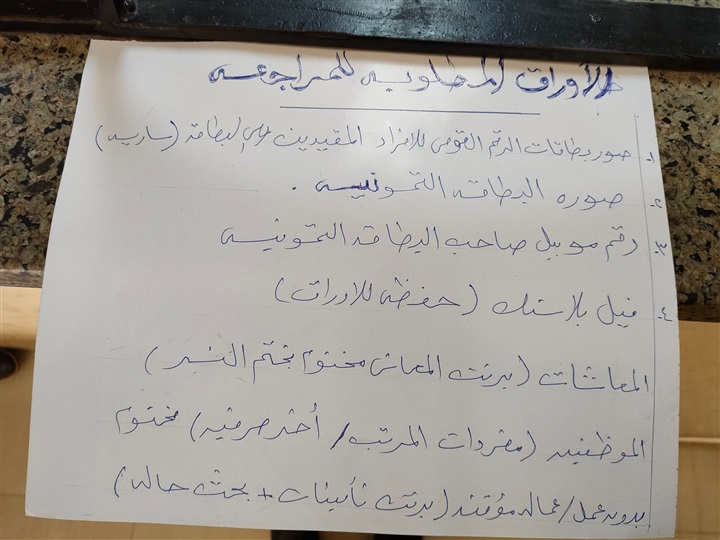 الأوراق المطلوبه للمراجعه
١- صور بطاقات الرقم القومى للافراد المقيدين على البطاقه (ساريه)
٢- صوره البطاقه التموينيه .
٣- رقم موبيل صاحب البطاقه التموينيه
٤- فيل بلاستك (حفظه للاوراق)
المعاشات (برنت المعاش مختوم بختم النسر)
الموظفين (مفردات المرتب / أخر صرفيه) مختوم
بدون عمل / عماله مؤقته (برنت تأمينات + بحث حاله)